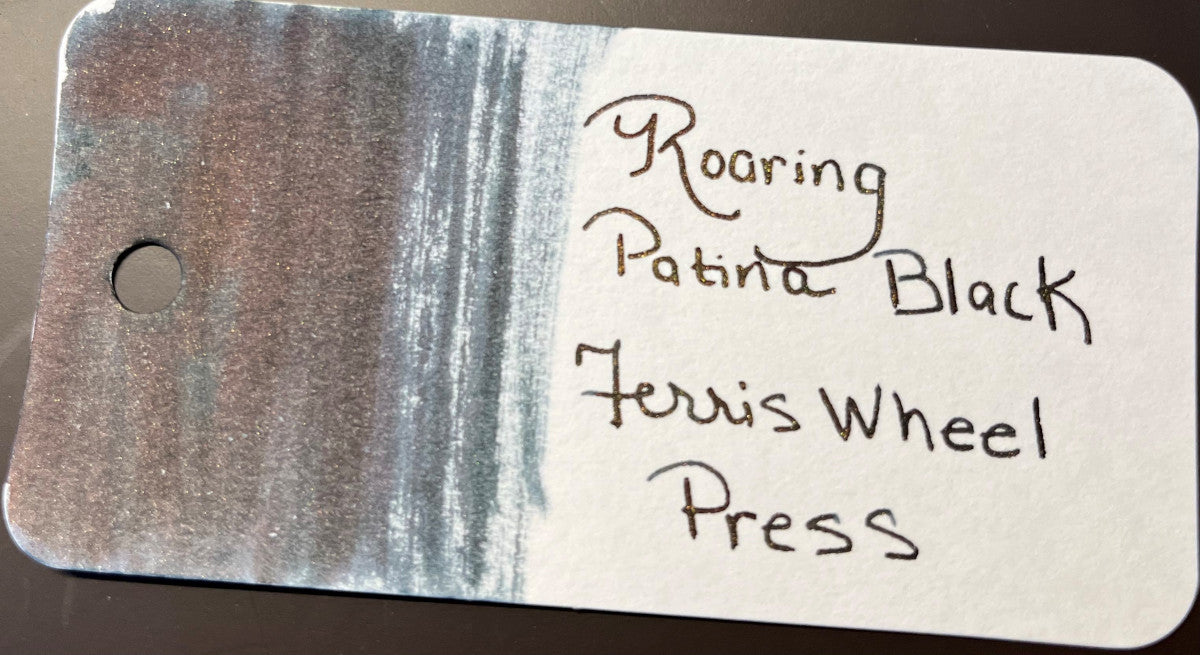 Roaring
Patina Black
Ferris Wheel
Press